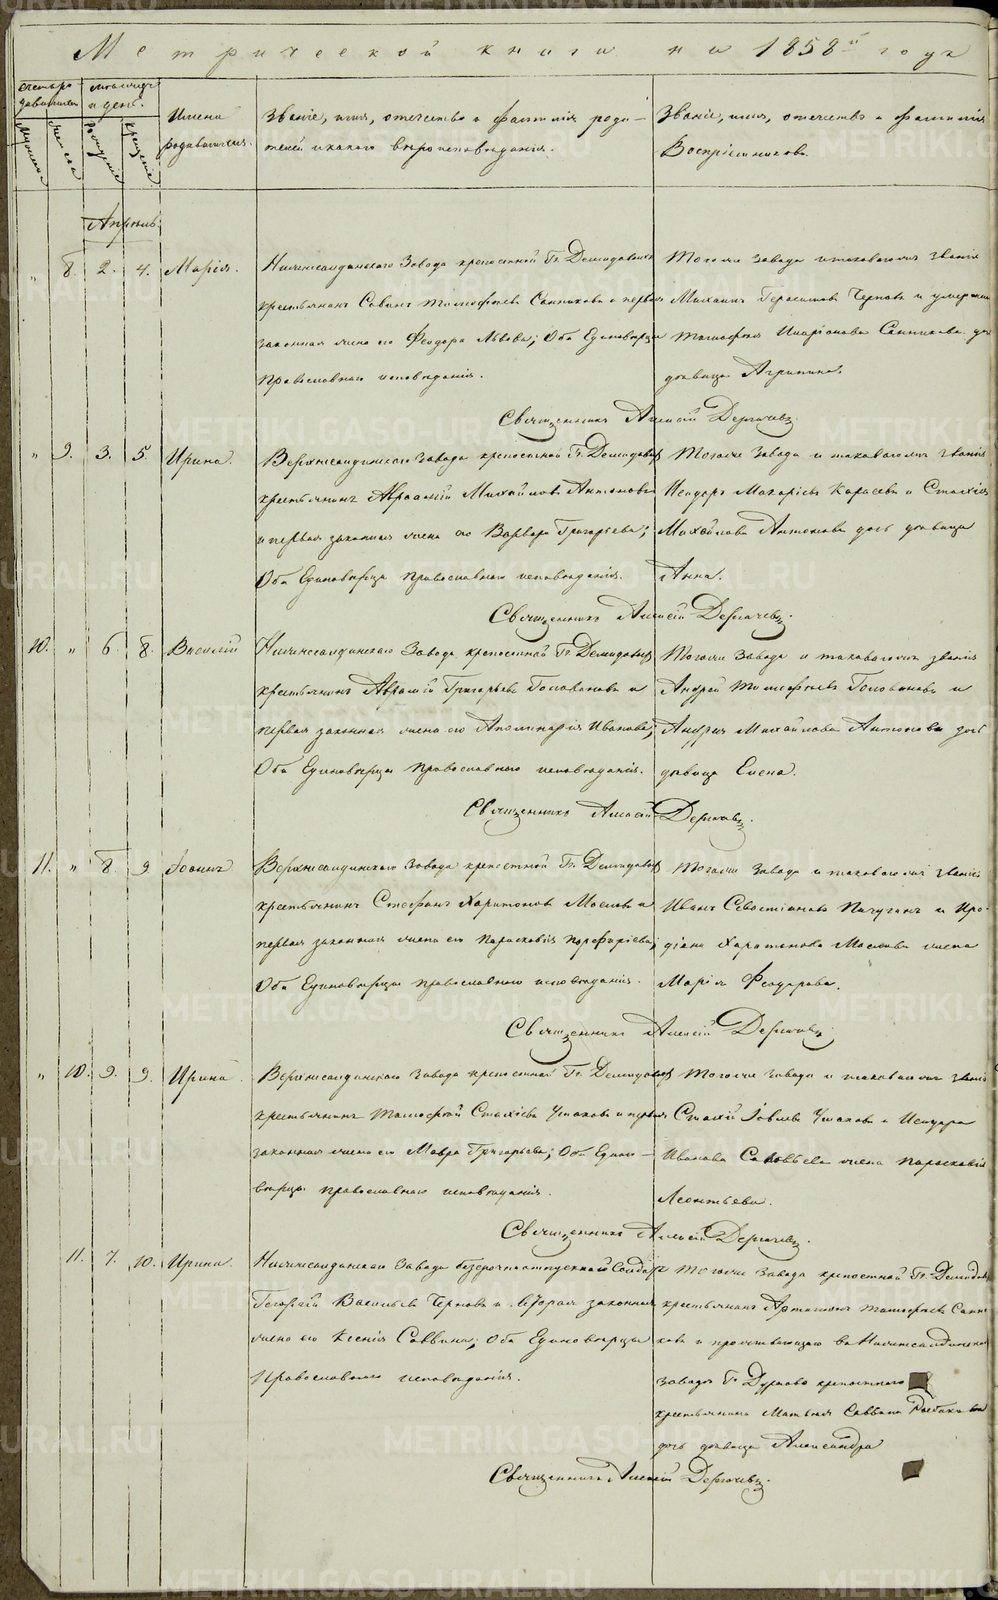 Метрической книги на 1858й годъ
Счетъ родившихся
Мѣсяцъ и день.
Имена родившихся.
Званіе, имя, отчество и фамилія роди-
телей и какого вѣроисповѣданія.
Званіе, имя, отчество и фамилія
Воспріемниковъ.
мужеска
женска
рожденія
крещенія
Апрѣль.
" 8. 2. 4. Марія.
Нижнесалдинскаго Завода крепостной Гг. Демидовыхъ
крестьянинъ Савинъ Тимофѣевъ Санниковъ и первая
законная жена его Феодора Львова; Оба Единовѣрцы
Православнаго исповѣданія.
Тогоже завода и таковагожъ званія
Михаилъ Герасимовъ Черновъ и умершаго
Тимофея Иларіонова Санникова дочь
дѣвица Агрипина.
Священникъ Алексій Дерягинъ
" 9. 3. 5. Ирина.
Верхнесалдинскаго Завода крепостной Гг. Демидовыхъ
крестьянинъ Авраамій Михайловъ Антоновъ
и первая законная жена его Варвара Григорьева;
Оба Единовѣрцы православнаго исповѣданія.
Тогоже Завода и таковагожъ званія
Исидоръ Макаріевъ Карасевъ и Стахія
Михайлова Антонова дочь дѣвица
Анна.
Священникъ Алексій
10. " 6. 8. Василій
Нижнесалдинскаго Завода крепостной Гг. Демидовыхъ
крестьянинъ Аврамій Григорьевъ Головановъ и
первая законная жена его Аполинарія Иванова;
Оба Единовѣрцы Православнаго исповѣданія.
Тогоже Завода и таковагожъ званія
Андрей Тимофеевъ Головановъ и
Андрея Михайлова Антонова дочь
дѣвица Елена.
Священникъ Алексій
11. " 8. 9. Іоаннъ
Верхнесалдинскаго Завода крепостной Гг. Демидовыхъ
крестьянинъ Стефанъ Харитоновъ Масловъ и
первая законная жена его Парасковія Порфиріева;
Оба Единовѣрцы православнаго исповѣданія.
Тогоже Завода и таковагожъ званія
Иванъ Севостіановъ Пичугинъ и Иро-
діона Харитонова Маслова жена
Марія Феодорова.
Священникъ Алексій
" 10. 9. 9. Ирина.
Верхнесалдинскаго Завода крепостной Гг. Демидовыхъ
крестьянинъ Тимофей Стахіевъ Ушаковъ и первая
законная жена его Мавра Григорьева; Оба Едино-
вѣрцы православнаго исповѣданія.
Тогоже Завода и таковагожъ званія
Стахій Іовлевъ Ушаковъ и Исидора
Иванова Соловьева жена Парасковія
Леонтьева.
Священникъ Алексій
11. 7. 10. Ирина.
Нижнесалдинскаго Завода безсрочноотпускной Солдатъ
Георгій Васильевъ Черновъ и вторая законная
жена его Ксенія Саввина; Оба Единовѣрцы
Православнаго исповѣданія.
Тогоже Завода крепостной Гг. Демидовыхъ
крестьянинъ Артамонъ Тимофеевъ Санни-
ковъ и проживающаго въ Нижнесалдинскомъ
заводѣ Гг. Дурново крепостнаго
крестьянина Матвея Саввина
дочь дѣвица Александра
Священникъ Алексій
METRIKI.GASO-URAL.RU